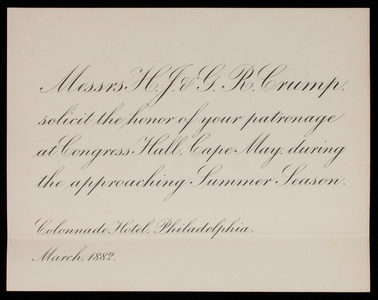 Messrs. H. J. & G. R. Crump.
solicit the honor of your patronage
at Congress Hall, Cape May, during
the approaching Summer Season.
Colonnade Hotel, Philadelphia.
March, 1882.